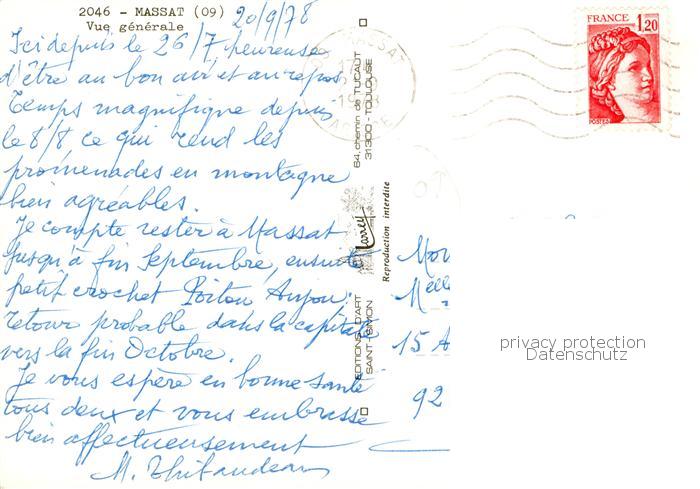 2046 - MASSAT (09) 20/9/78
Vue générale
Ici depuis le 26/7, heureuse
d'être au bon air et au repos
Temps magnifique depuis
le 8/8 ce qui rend les
promenades en montagne
bien agréables.
Je compte rester à Massat
jusqu'à fin Septembre, ensuite
petit crochet Poitou Anjou :
retour probable dans la capitale
vers la fin Octobre.
Je vous espère en bonne santé
tous deux et vous embrasse
bien affectueusement
M. Thibaudeau
EDITIONS D'ART
SAINT-SIMON
Larrey
Reproduction interdite
64, chemin de TUCAUT
31300 - TOULOUSE
MASSAT
FRANCE
1,20
POSTES
15 A
92
privacy protection
Datenschutz